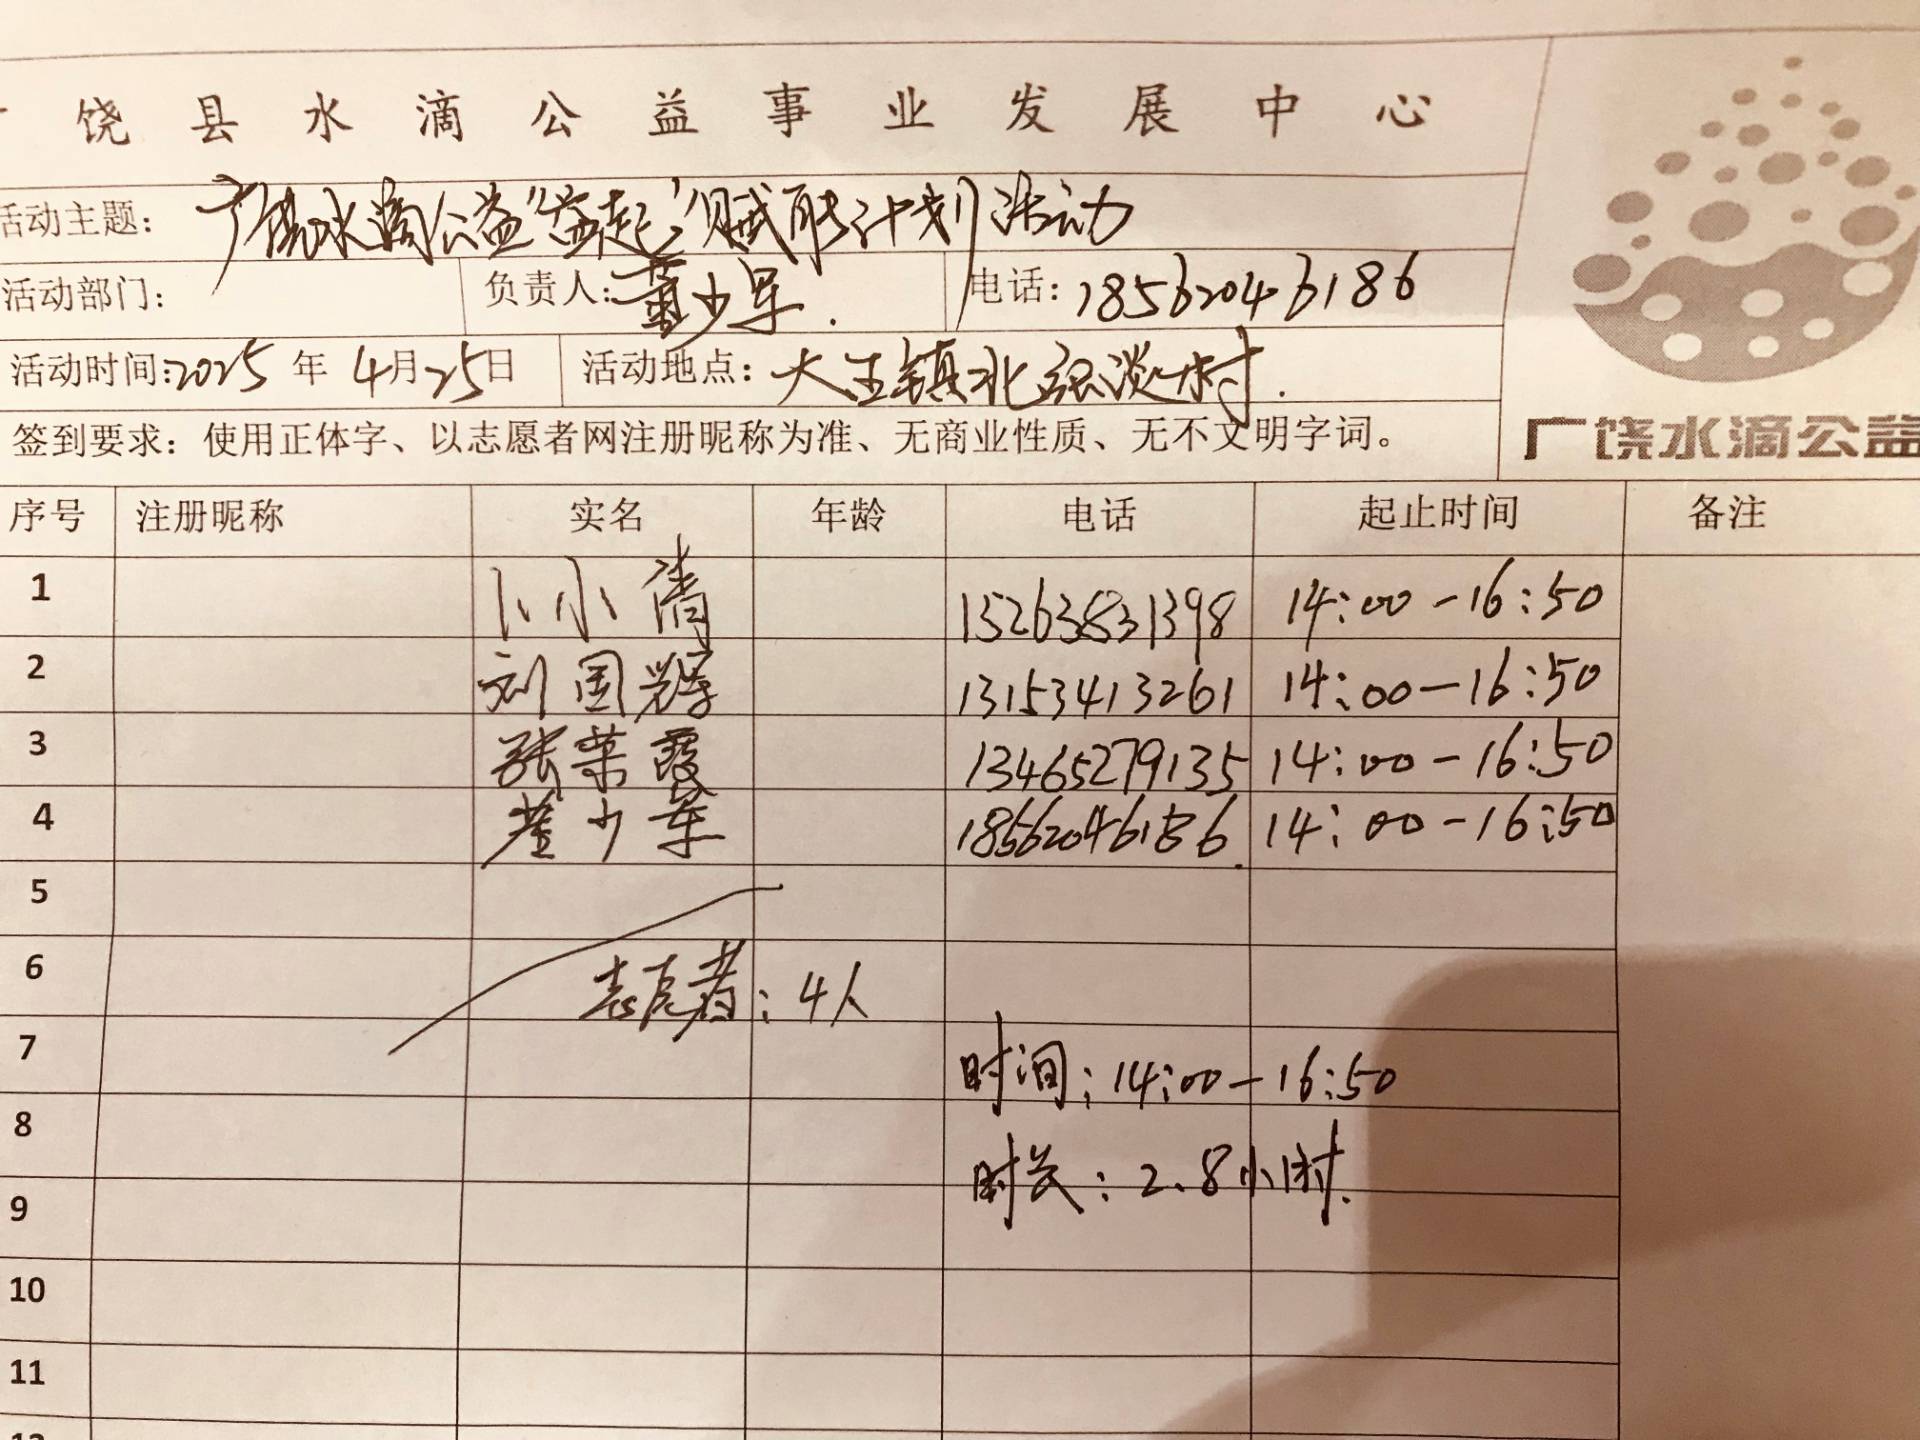 饶县水滴公益事业发展中心
活动主题：广饶水滴公益"益起"赋能计划活动
活动部门： 负责人：董少军. 电话：18562046186
活动时间：2025年4月25日 活动地点：大王镇北张淡村.
签到要求：使用正体字、以志愿者网注册昵称为准、无商业性质、无不文明字词。
广饶水滴公益
序号 注册昵称 实名 年龄 电话 起止时间 备注
1 卜小清 15263831398 14:00-16:50
2 刘国辉 13153413261 14:00-16:50
3 张荣霞 13465279135 14:00-16:50
4 董少军 18562046186. 14:00-16:50
5
6 志愿者：4人
7 时间：14:00-16:50
8
时长：2.8小时.
9
10
11